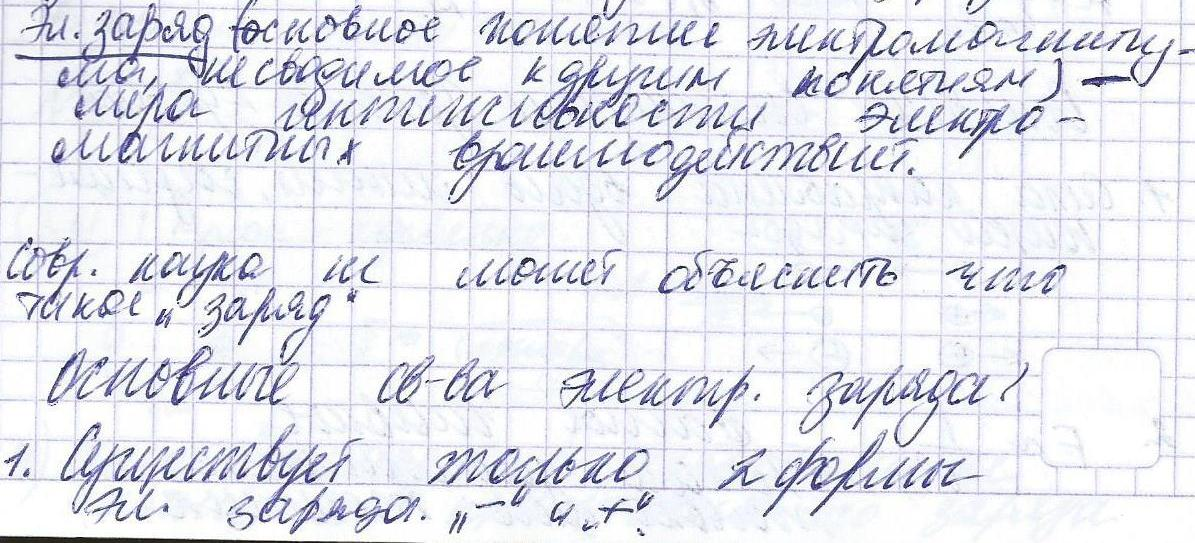 Эл. заряд (основное понятие электромагнетиз-
ма, несводимое к другим понятиям) —
мера интенсивности электро-
магнитных взаимодействий.
Совр. наука не может объяснить что
такое „заряд"
Основные св-ва электр. заряда:
1. Существует только 2 формы
Эл. заряда. „–" и „+".